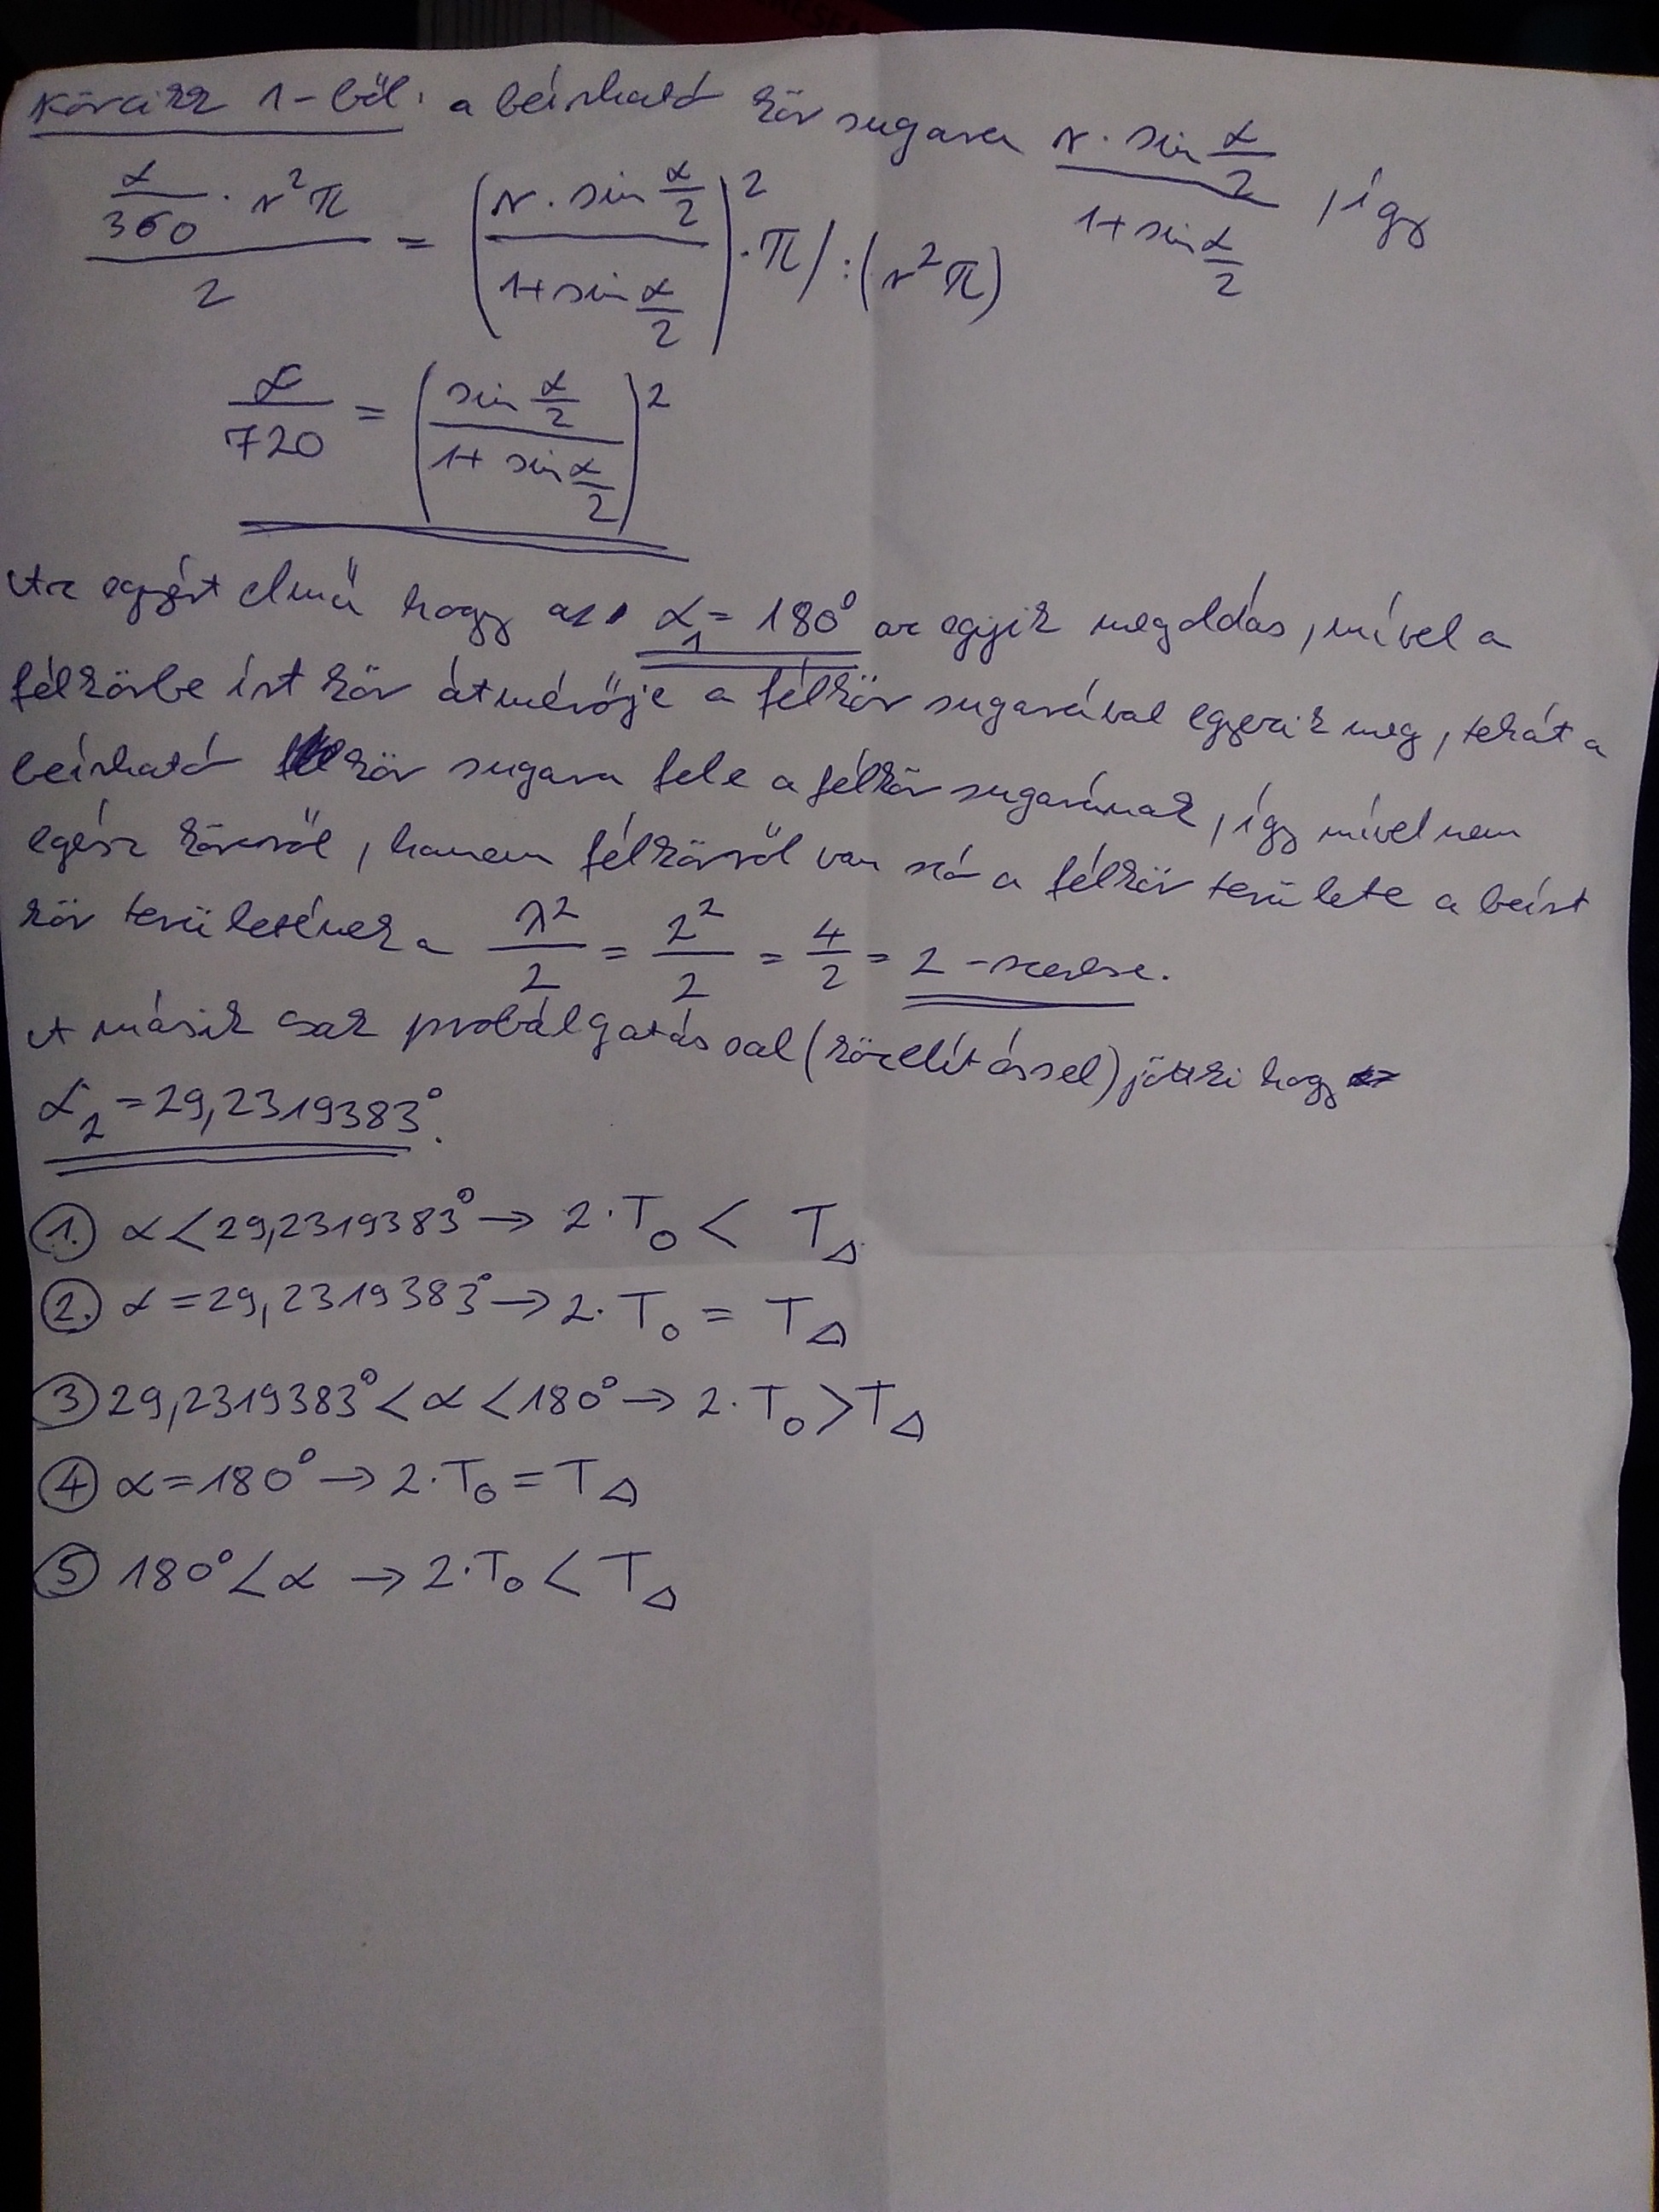 Körcikk 1-ből: a beírható kör sugara (r · sin α/2)/(1+sin α/2), így
(α/360 · r²π)/2 = ((r · sin α/2)/(1+sin α/2))² · π /:(r²π)
α/720 = ((sin α/2)/(1+ sin α/2))²
hogy α₁ = 180° az egyik megoldás, mível a
félkörbe írt kör átmérője a félkör sugarával egyezik meg, tehát a
beírható kör sugara fele a félkör sugarának, így mívelnem
egész körről, hanem félkörről van szó a félkör területe a beírt
kör területének a λ²/2 = 2²/2 = 4/2 = 2 -szerese.
A másik csak probálgatással (közelítéssel) jött ki hogy
α₂ = 29,2319383°.
1. α < 29,2319383° → 2·T○ < T△
2. α = 29,2319383° → 2·T○ = T△
3 29,2319383° < α < 180° → 2·T○ > T△
4 α = 180° → 2·T○ = T△
5 180° < α → 2·T○ < T△